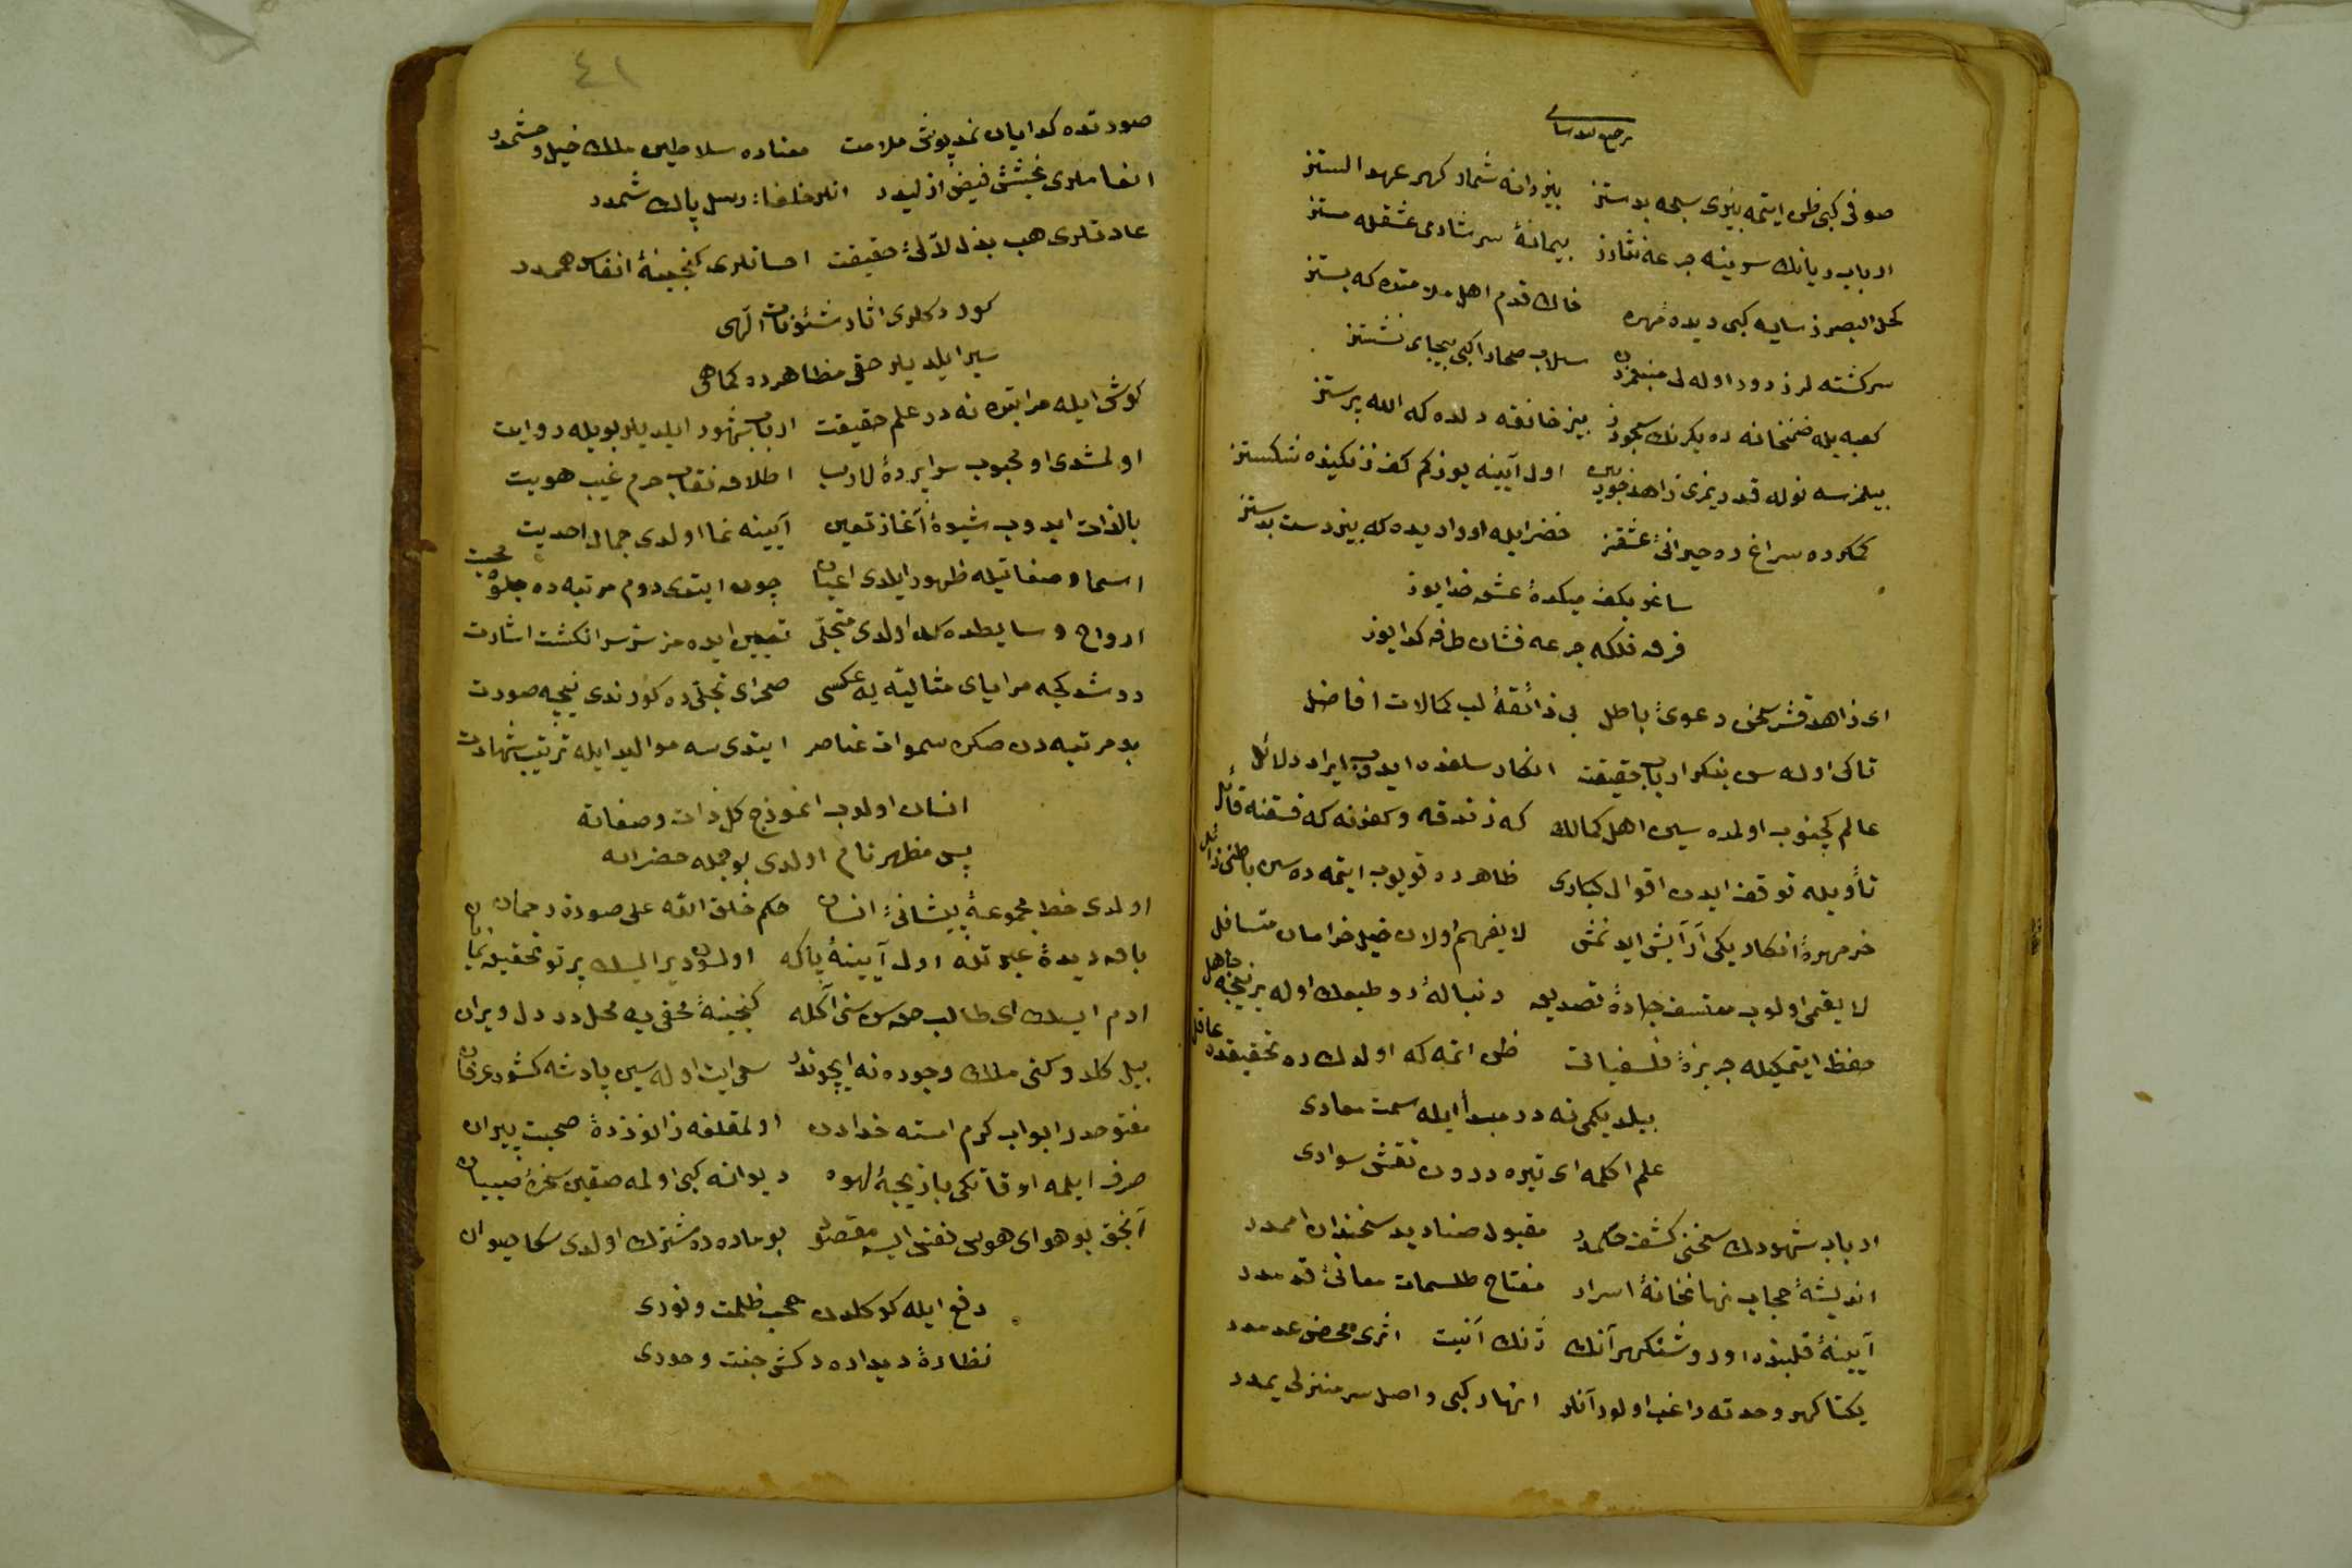 صوفی کبی ظن ایتمه بیزی سبحه بدستز بیز دانه شمار کهر عهد الستز
ارباب ریانك سوینه جرعه نثارز پیمانهٔ سرشار می عشقله مستز
کحل البصرز سایه کبی دیدهٔ مهره خاك قدم اهل ملامتده که پستز
سرکشته لرز دور اوله لی منبعمزدن سیلاب صحارا کبی بیجای نشستز
کعبه یله صنمخانه ده یکرنك سجودز بیز خانقه دلده که الله پرستز
بیلمزسه نوله قدریمزی زاهد خودبین اول آیینه یوز کم کف زنکیده شکستز
کمکرده سراغ ره حیرانئ عشقز خضر ایله او وادیده که بیز دست بدستز
ساغر بکف میکدهٔ عشق خدایوز
فرق فلکه جرعه فشان طرفه کدایوز
ای زاهد قشر سخن دعوئ باطل بی ذائقهٔ لب کمالات افاضل
تاکی اوله سن منکر ارباب حقیقت انکار سلفده ایدوب ایراد دلائل
عالم کچنوب اولمده سین اهل کمالك که زندقه و کفرنه که فسقنه قائل
تأویله توقف ایدن اقوال کباری ظاهرده قویوب ایتمه ده سین باطنی زائل
خرمهرهٔ انکار یکی آرایش ایدنمش لا یفهم اولان خیل خرامان متسافل
لا یقمی اولوب معتسف جادهٔ تصدیق دنبالهٔ رو طبعك اوله بر نیجه جاهل
حفظ ایتمکیله جربزهٔ فلسفیاتی ظن اتمه که اولدك ره تحقیقده عاقل
بیلدیکمی نه در مبدأ ایله سمت معادی
علم اکلمه ای تیره درون نقش سوادی
ارباب شهودك سخنی کشف حکمدر مقبول صنادید سخندان اممدر
اندیشهٔ حجاب نهانخانهٔ اسرار مفتاح طلسمات معانئ قدمدر
آیینهٔ قلبنده اورو شنکهر آنك ژنك انیت اثری محض عدمدر
یکتا کهر وحدته راغب اولور آنلر انهار کبی واصل سر منزل یمدر
٤١
صورتده کدایان نمدپوش ملامت معناده سلاطین ملك خیل و حشمدر
انفاسلری بخشش فیض ازلیدر انلر خلفاء رسل پاك شممدر
عادتلری هب بذل لآلئ حقیقت احسانلری کنجینهٔ انفاس هممدر
کوردکلری اثار شئونات الهی
سیر ایلدیلر حقی مظاهرده کماهی
کوش ایله مراتبده نه در علم حقیقت ارباب شهود ایلدیلر بویله روایت
اولمشدی او محبوب سراپردهٔ لاریب اطلاق نقاب حرم غیب هویت
بالذات ایدوب شیوهٔ آغاز تعین آیینه نما اولدی جمال احدیت
اسما و صفاتیله ظهور ایلدی اعیان چون ایتدی دوم مرتبه ده جلوه محبت
ارواح و سایطده اولدی متجلی تعیین ایده مز سر انکشت اشارت
دوشدکجه مرایای مثالیه یه عکسی صحرای تجلی ده کورندی نیجه صورت
بو مرتبه دن صکره سموات عناصر ایتدی سه موالید ایله ترتیب شهادت
انسان اولوب انموذج کل ذات و صفاته
پس مظهر تام اولدی بو جمله حضراته
اولدی خط مجموعهٔ پیشانئ انسان حکم خلق الله علی صورة رحمان
باق دیدهٔ عبرتله اول آیینهٔ پاکه اولسون دیر ایسك پرتو تحقیق نمایان
ادم ایسك ای طالب حق سن سنی اکله کنجینهٔ مخفی یه محل در دل ویران
بیل کلدوکنی ملك وجوده نه ایچوندر سعی ایت اوله سین پادشه کشور عرفان
مفتوحدر ابواب کرم استه خدادن اولمقلغه زانوزدهٔ صحبت پیران
صرف ایلمه اوقاتکی بازیجهٔ لهوه دیوانه کبی اولمه صقین سخرهٔ صبیان
آنجق بو هوای هوس نفس ایسه مقصود بو ماده ده مشترك اولدی سکا حیوان
دفع ایله کوکلدن حجب ظلمت و نوری
نظارهٔ دیداره دکش جنت و حوری